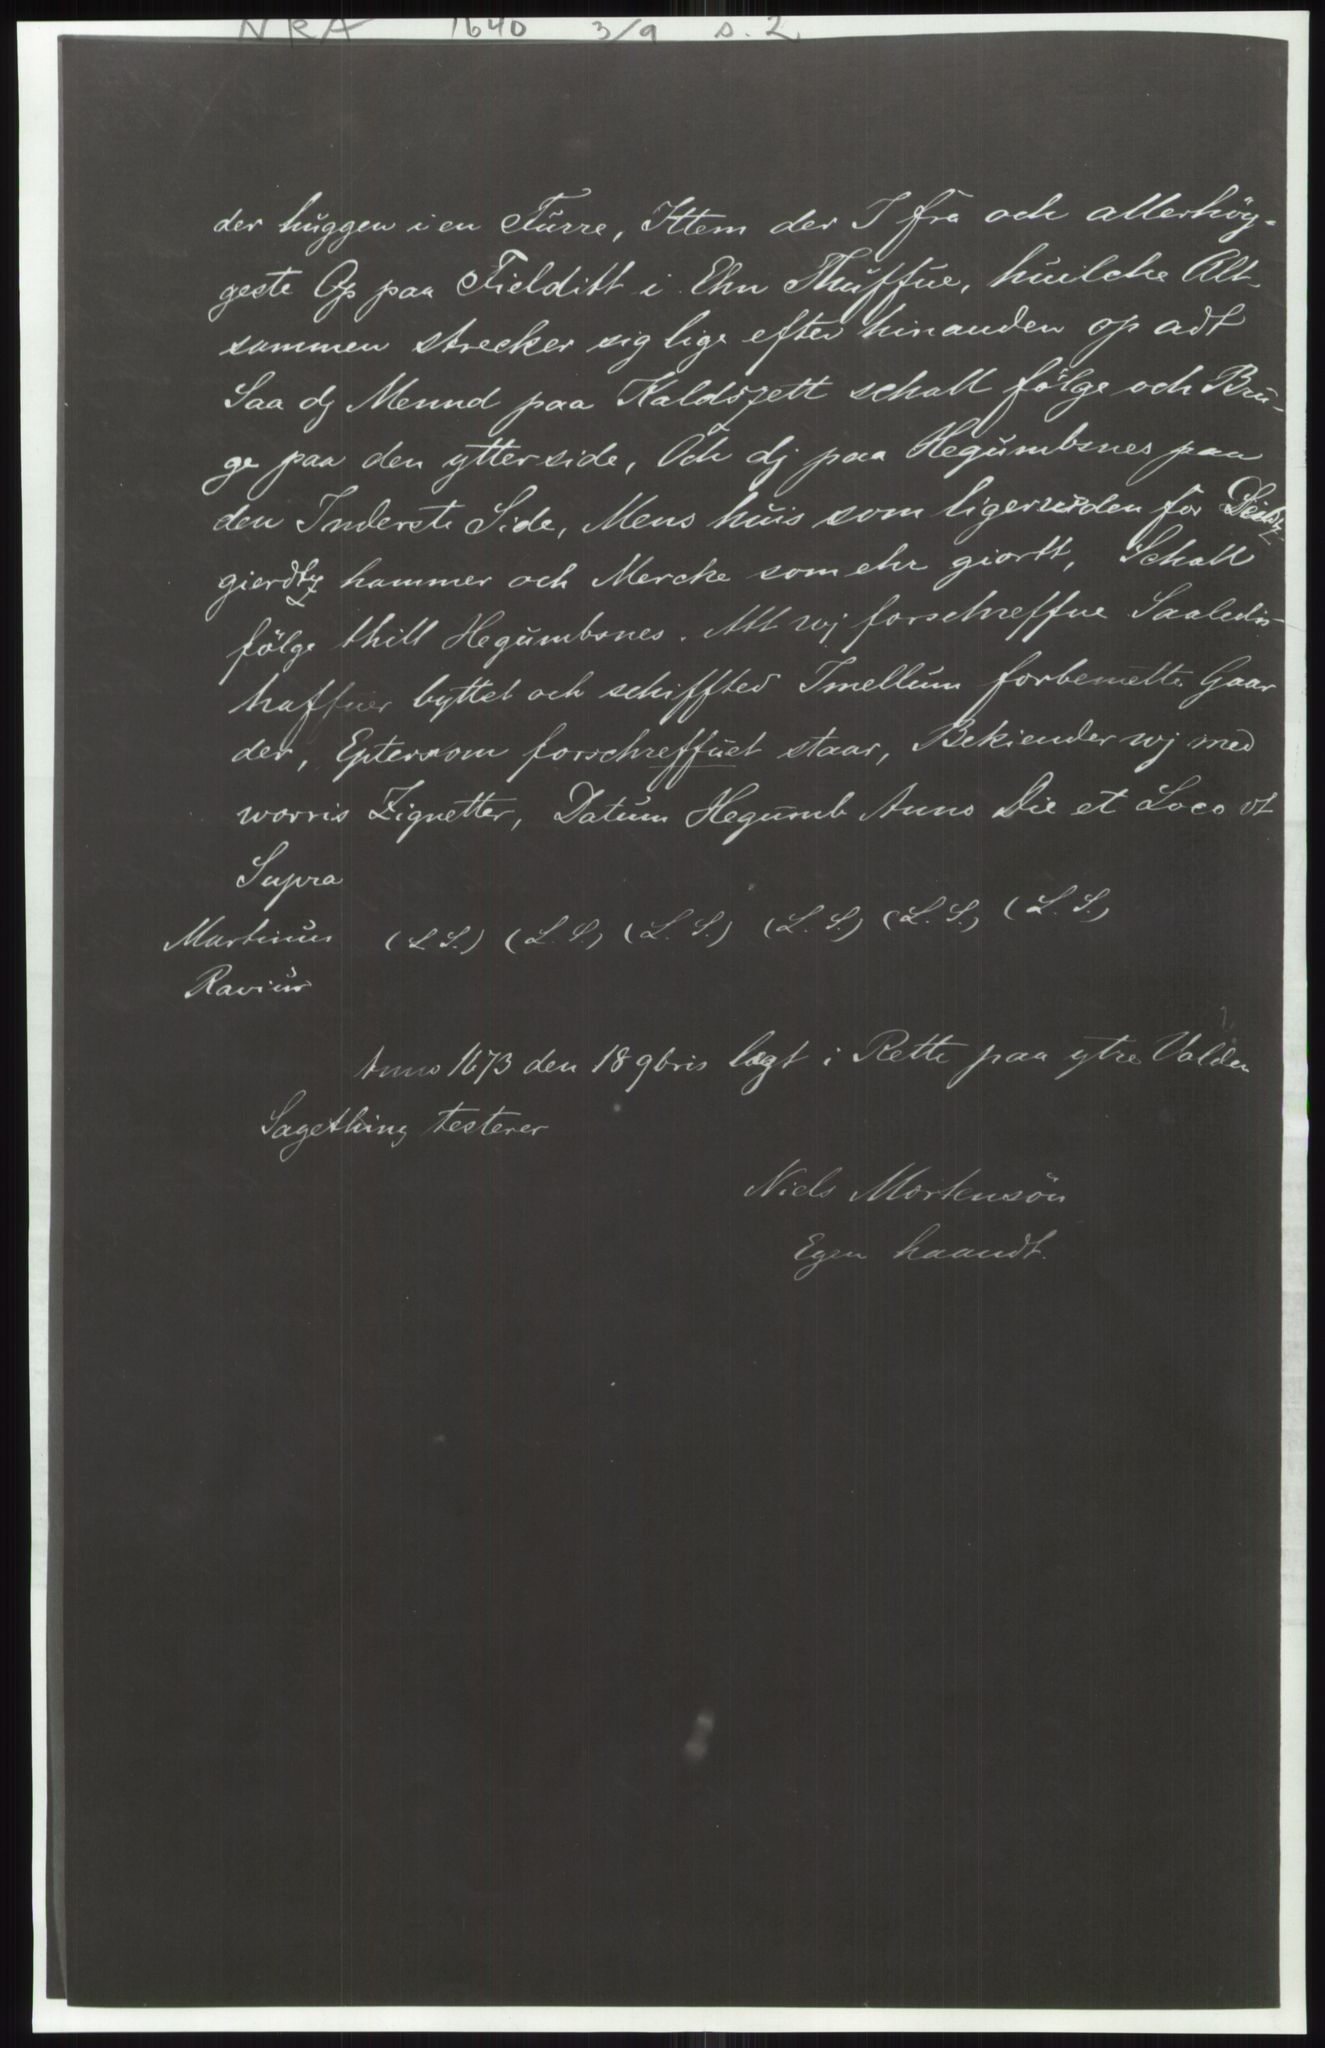 NRA 1640 3/9 s. 2
der huggen i en Furre, Ittem der I fra och allerhöy-
geste Op paa Fielditt i Ehn Thuffue, huilche Alt-
sammen strecker sig lige efter hinanden op adt
Saa dj Mennd paa Kaldszett schall fölge och Bru-
ge paa den ytterside, Och dj paa Hegumbsnes paa
den Inderste Side, Mens huis som liger uden for
gierdtz hammer och Mercke som ehr giortt, Schall
fölge thill Hegumbsnes. Att wj forschreffue Saaledis
haffuer byttet och schiffted Imellum forbemette Gaar
der, Eptersom forschreffuet staar, Bekiender wj med
worris Zignetter, Datum Hegumb Anno Die et Loco vt
Supra
Martinus (L S.) (L. S.) (L. S.) (L. S.) (L. S.) (L. S.)
Ravius
Anno 1673 den 18 9bris lagt i Rette paa ytre Valden
Sagething testerer
Niels Mortensön
Egen haandt.